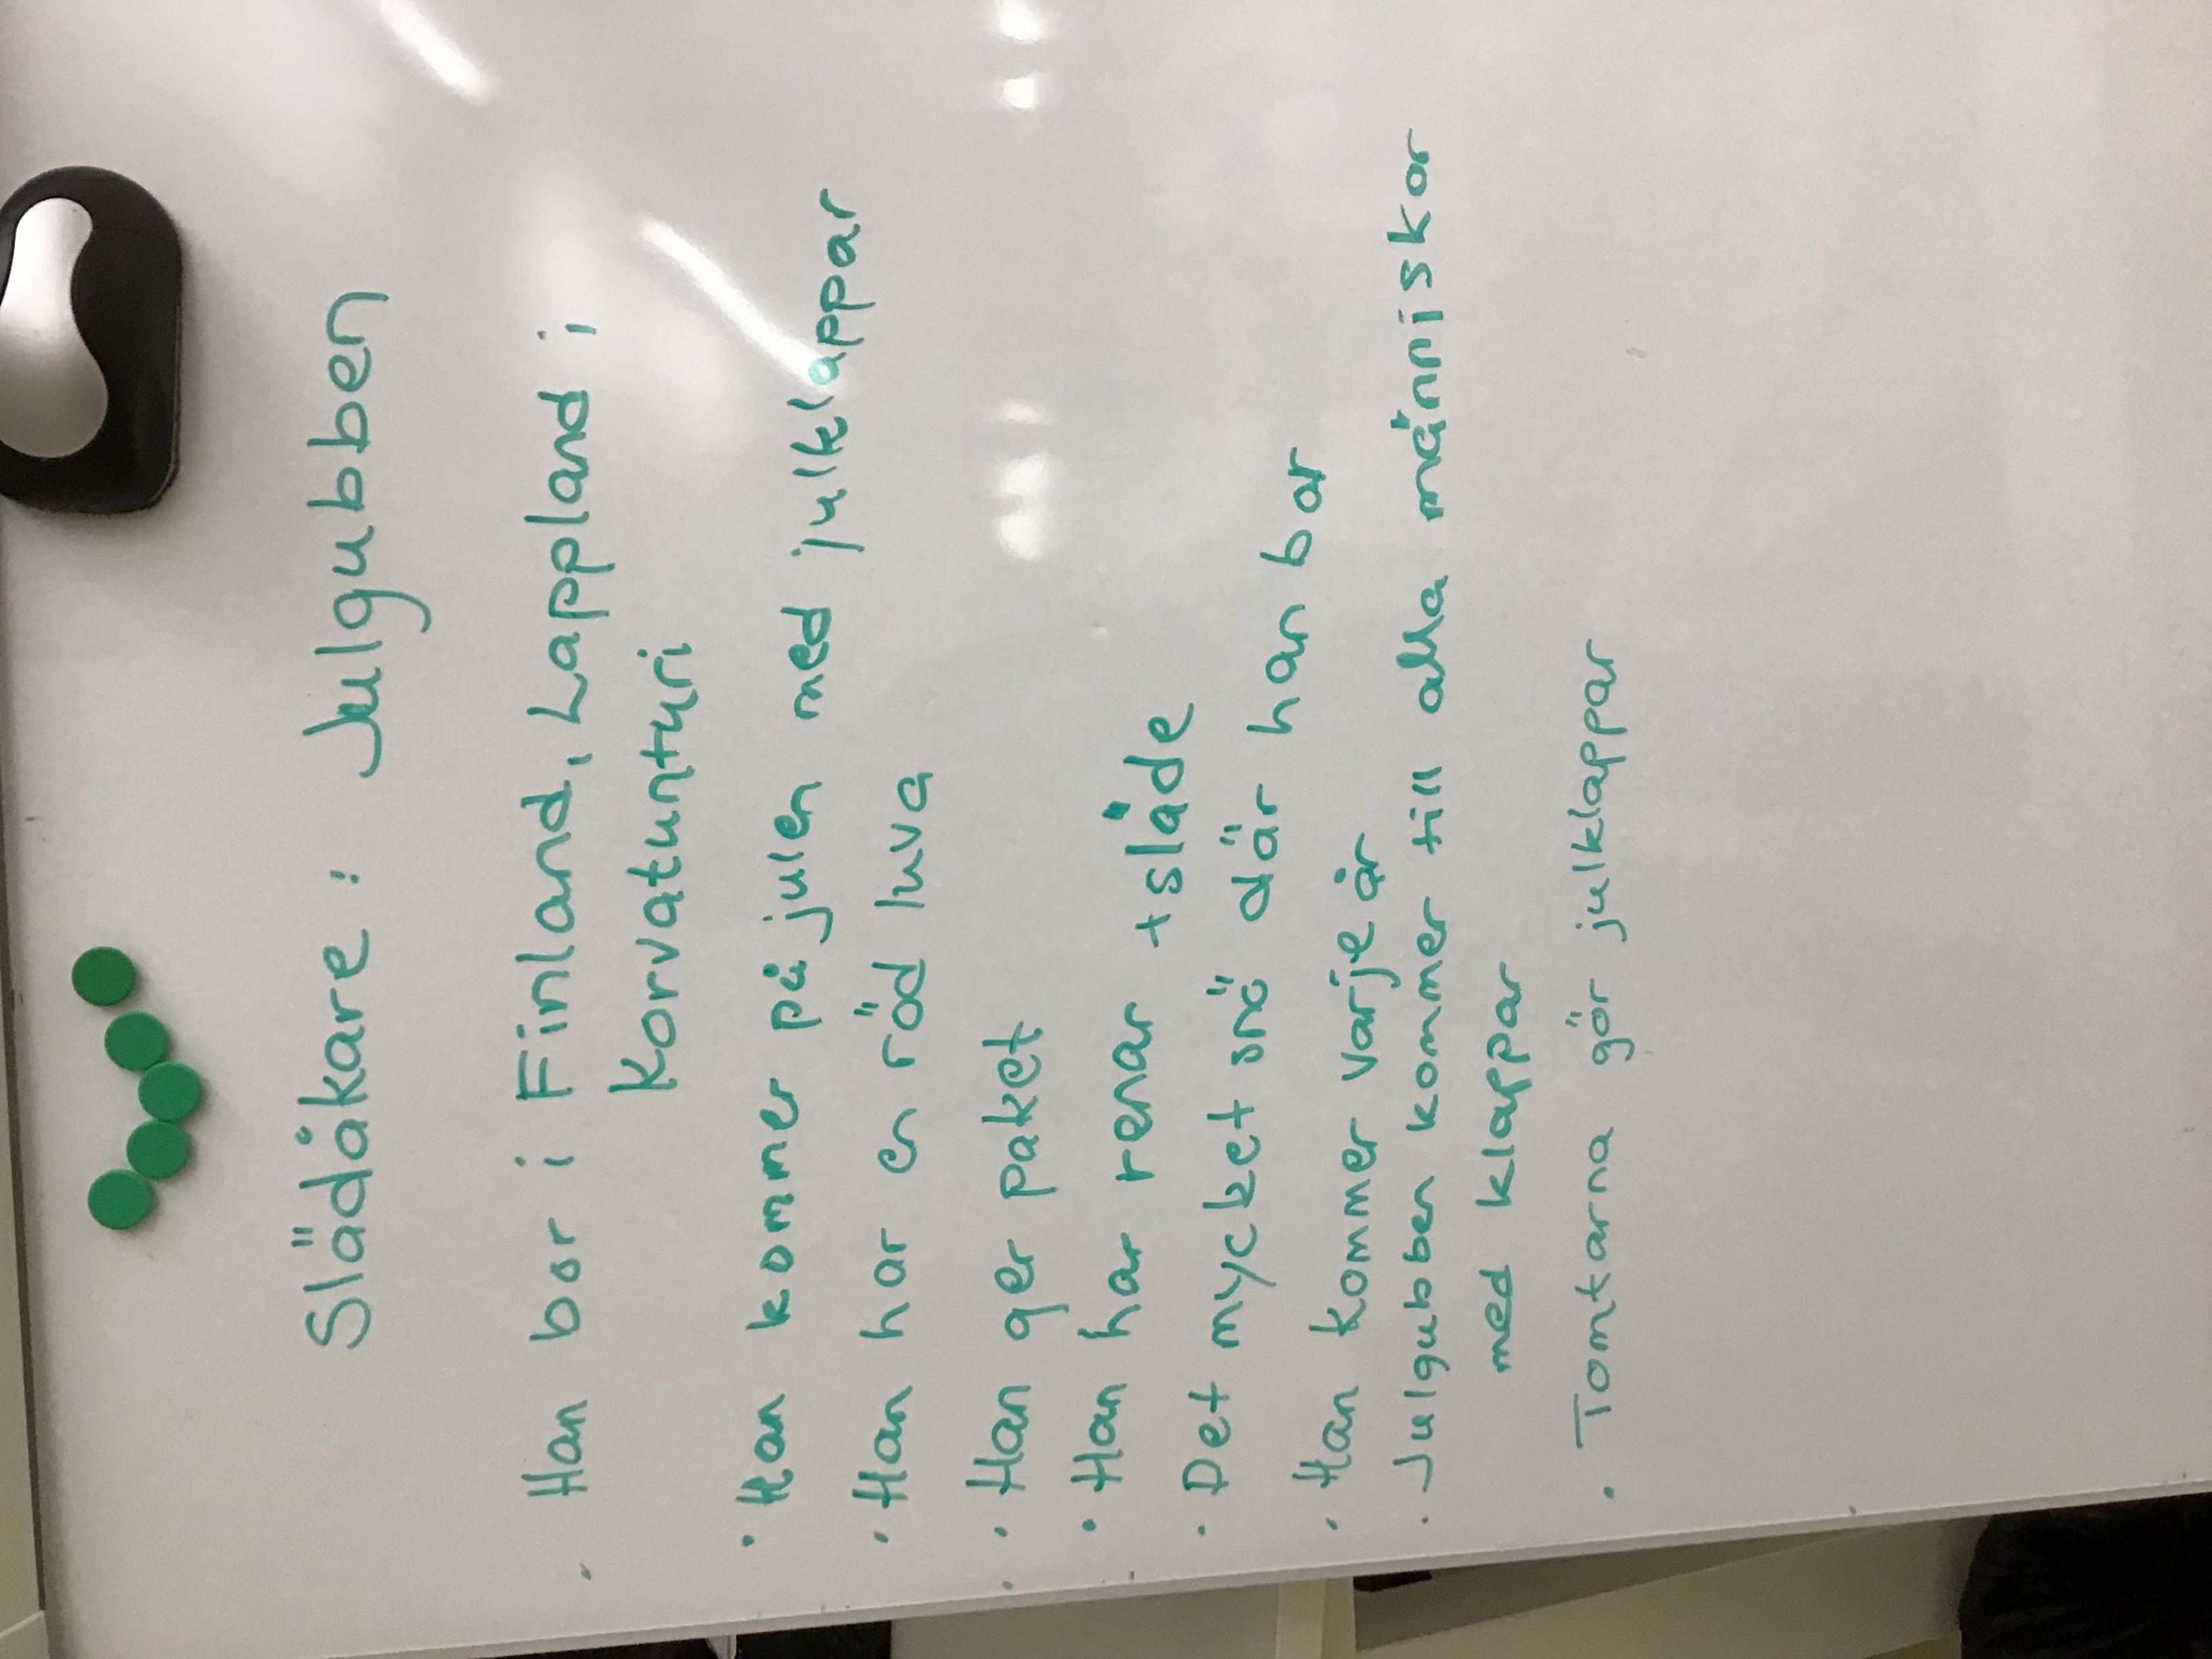 Slädåkare: Julgubben
· Han bor i Finland, Lappland i
Korvatunturi
· Han kommer på julen med julklappar
· Han har en röd luva
· Han ger paket
· Han har renar + släde
· Det mycket snö där han bor
· Han kommer varje år
· Julgubben kommer till alla människor
med klappar
· Tomtarna gör julklappar